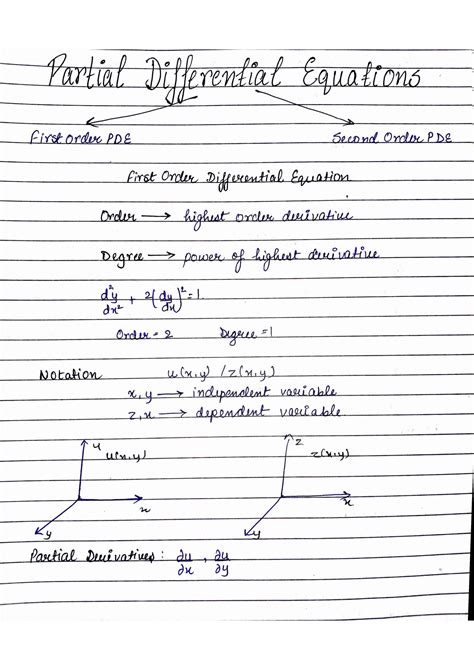 Partial Differential Equations
First Order PDE Second Order PDE
First Order Differential Equation
Order → highest order derivative
Degree → power of highest derivative
d²y/dx² + 2(dy/dx)² = 1.
Order = 2 Degree = 1
Notation u(x,y) / z(x,y)
x, y → independent variable
z, x → dependent variable.
u u(x,y) z z(x,y)
x x
y y
Partial Derivatives : ∂u/∂x , ∂u/∂y